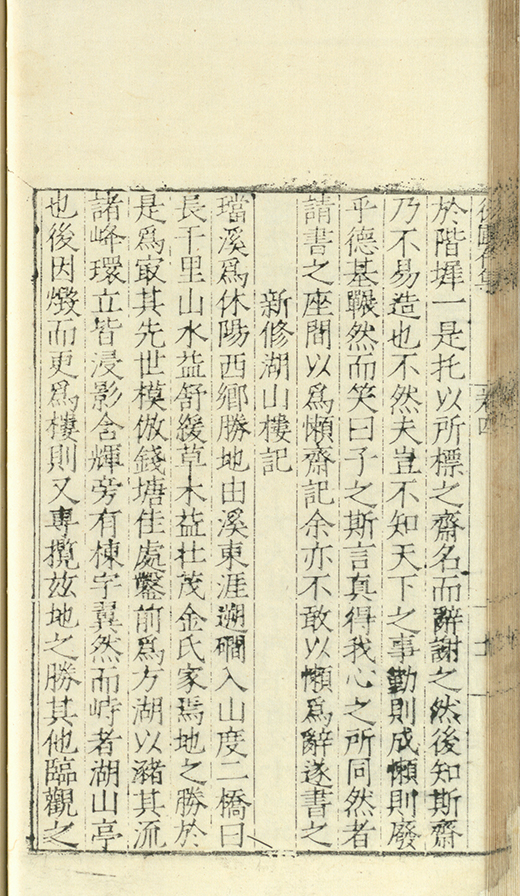 卷四
於階墀一是托以所標之齋名而辭謝之然後知斯齋
乃不易造也不然夫豈不知天下之事勤則成懶則廢
乎德基囅然而笑曰子之斯言真得我心之所同然者
請書之座間以爲懶齋記余亦不敢以懶爲辭遂書之
新修湖山樓記
璫溪爲休陽西鄉勝地由溪東涯遡磵入山度二橋曰
長干里山水益舒緩草木益壯茂金氏家焉地之勝於
是爲㝡其先世模倣錢塘佳處鑿前爲方湖以瀦其流
諸峰環立皆浸影含輝旁有棟宇翼然而峙者湖山亭
也後因燬而更爲樓則又專攬兹地之勝其他臨觀之